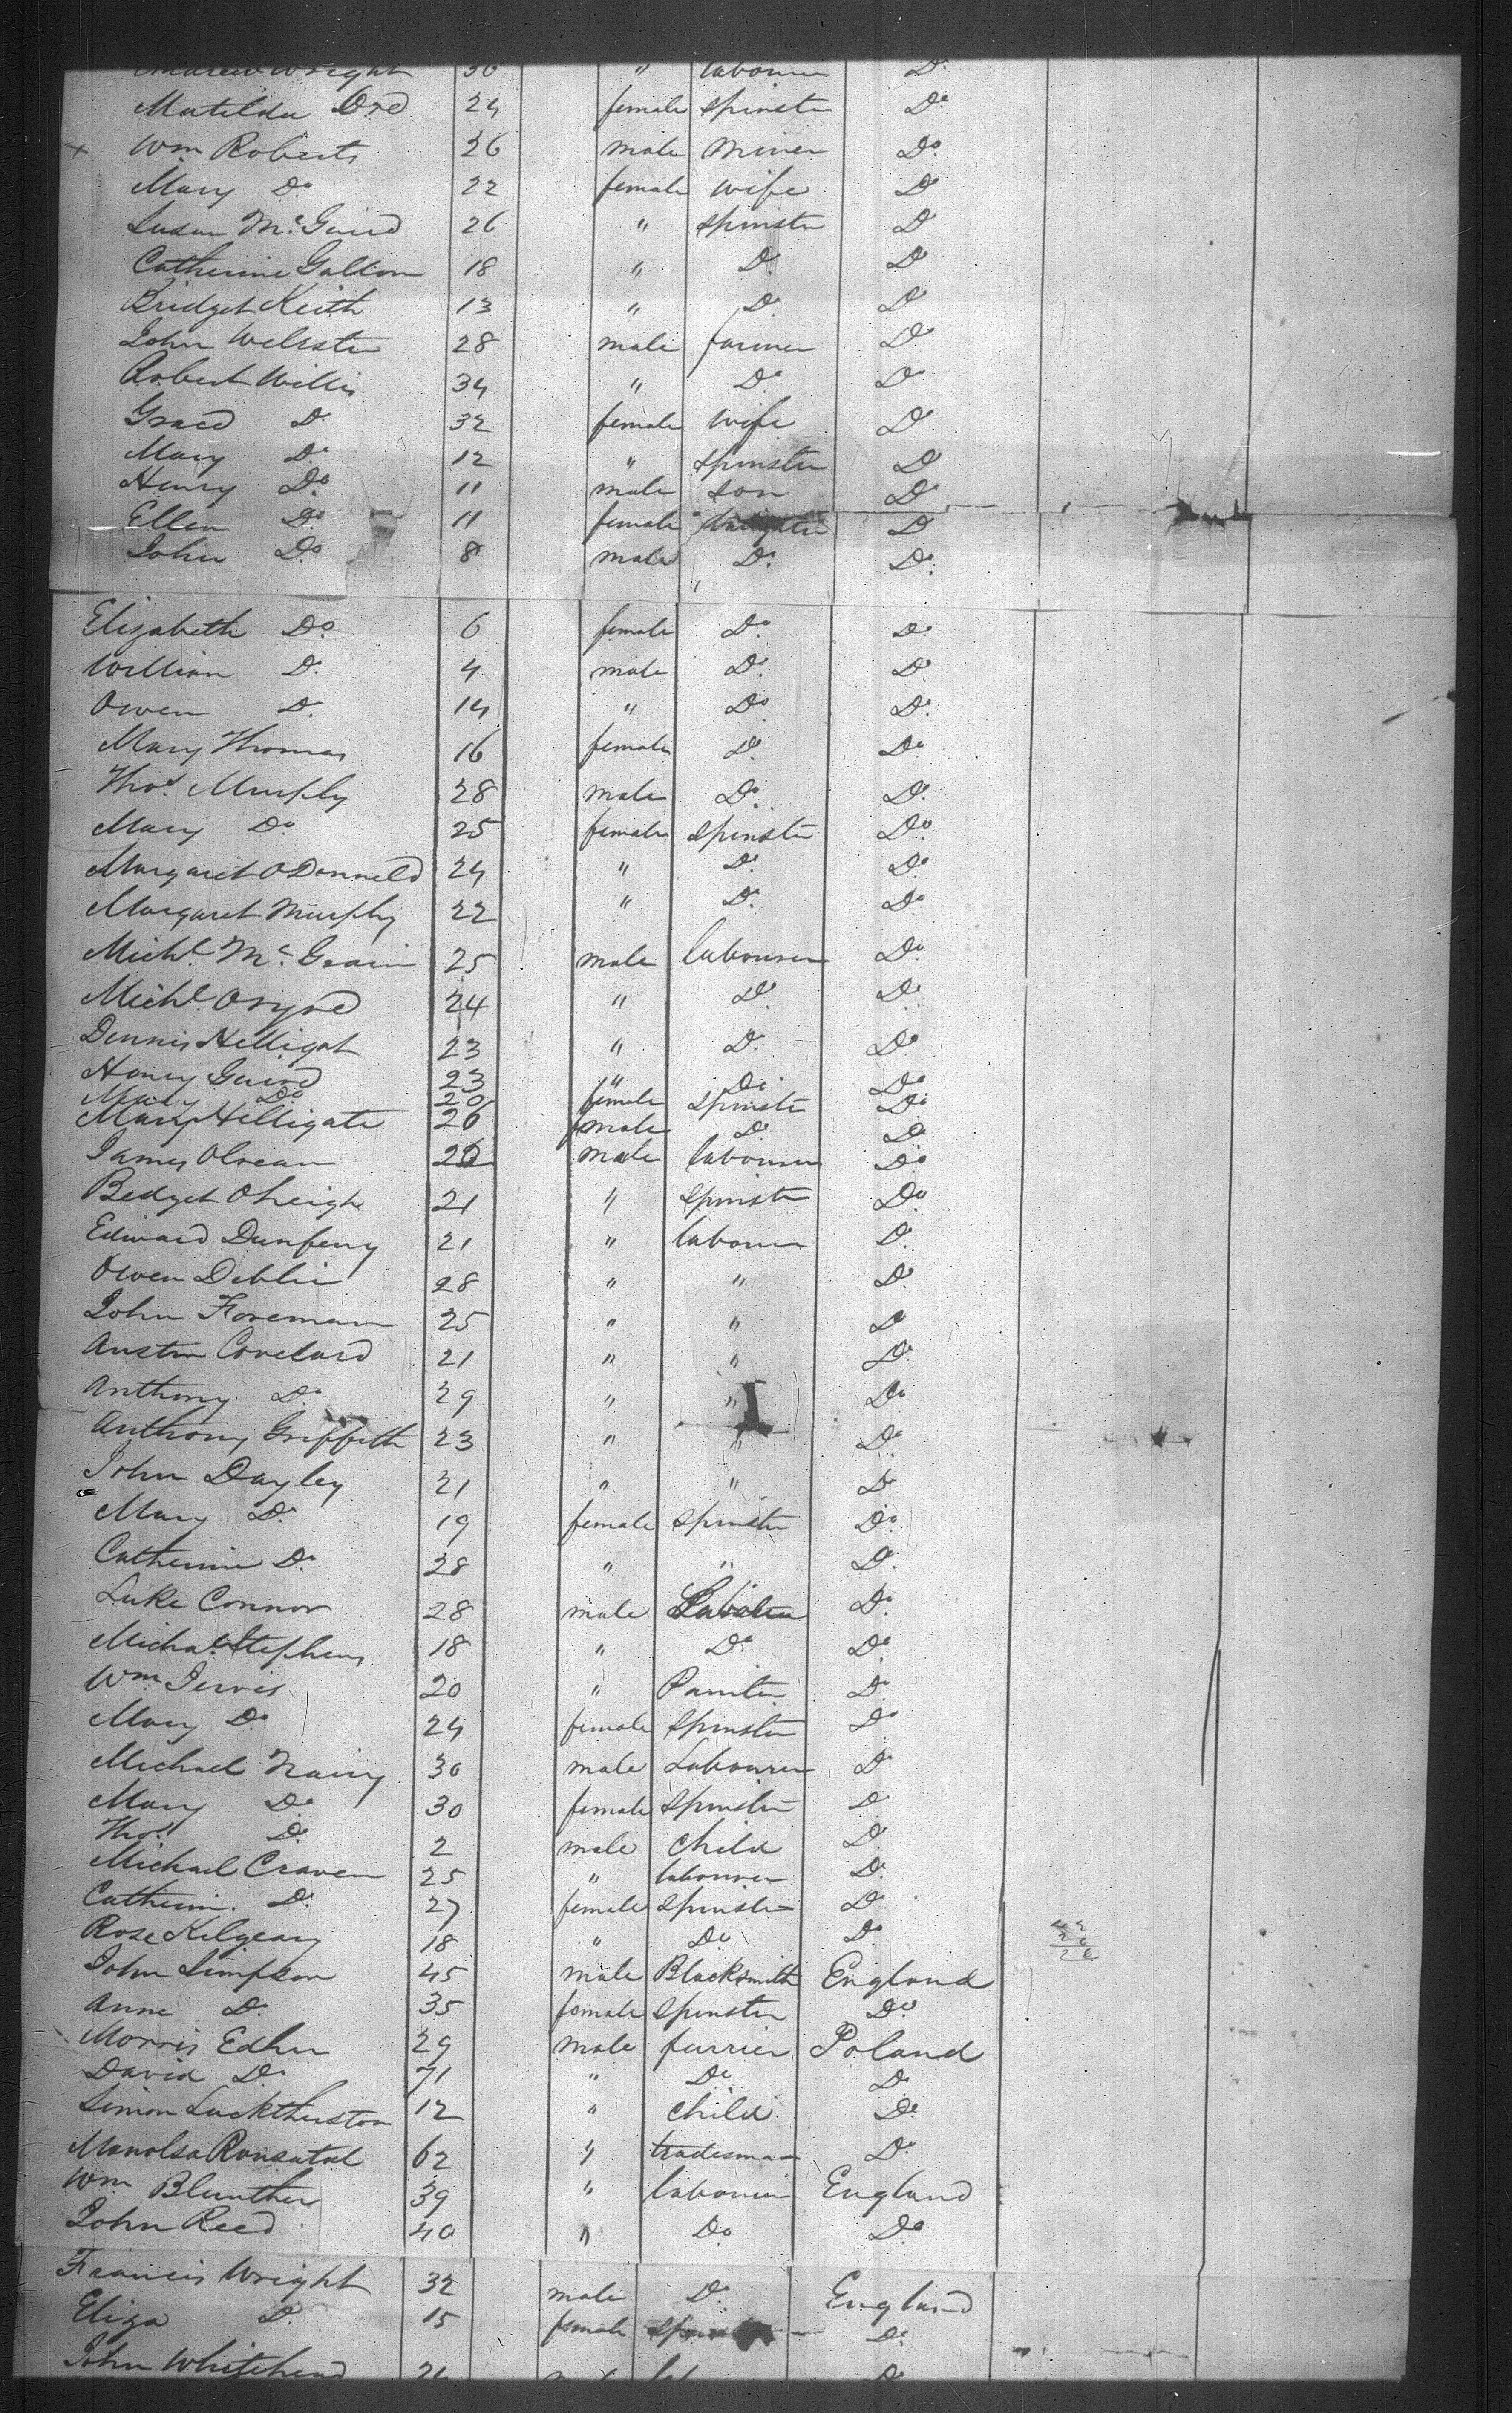 Andrew Wright 30 " labourer Do
Matilda Do 24 female spinster Do
+ Wm Roberts 26 male miner Do
Mary Do 22 female wife Do
Susan Mc 26 " spinster Do
Catherine 18 " Do Do
Bridget Keith 13 " Do Do
John Webster 28 male farmer Do
Robert Willis 34 " Do Do
Grace Do 32 female wife Do
Mary Do 12 " spinster Do
Henry Do 11 male son Do
Ellen Do 11 female daughter Do
John Do 8 male Do Do
Elizabeth Do 6 female Do Do
William Do 4 male Do Do
Owen Do 14 " Do Do
Mary Thomas 16 female Do Do
Thos. Murphy 28 male Do Do
Mary Do 25 female spinster Do
Margaret ODonneld 24 " Do Do
Margaret Murphy 22 " Do Do
Michl. Mc. Grain 25 male labourer Do
Michl. 24 " Do Do
Dennis Helligat 23 " Do Do
Henry 23 " Do Do
Mary Do 20 female spinster Do
Mary Helligate 26 female Do Do
James 22 male labourer Do
Bedget OLeigh 21 " spinster Do
Edward Dunfeny 21 " labourer Do
Owen Deblin 28 " " Do
John Foreman 25 " " Do
Austin Covelard 21 " " Do
Anthony Do 29 " " Do
Anthony Griffith 23 " " Do
John Dayley 21 " " Do
Mary Do 19 female spinster Do
Catherine Do 28 " " Do
Luke Connor 28 male Labourer Do
Michal Stephens 18 " Do Do
Wm Jervis 20 " Painter Do
Mary Do 24 female spinster Do
Michael Nairy 30 male Labourer Do
Mary Do 30 female spinster Do
Thos. Do 2 male child Do
Michael Craven 25 " labourer Do
Catherin. Do 27 female spinster Do
Rose Kilgeary 18 " Do Do
John Simpson 45 male Blacksmith England
Anne Do 35 female spinster Do
Morris Edhn 29 male furrier Poland
David Do 71 " Do Do
Simon Lucktherston 12 " child Do
62 " tradesman Do
Wm Blunther 39 " labourer England
John Reed 40 " Do Do
Francis Wright 32 male Do England
Eliza Do 15 female Do
John Whitehead 26 Do